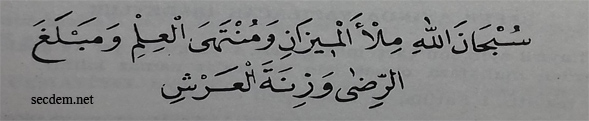 سُبْحَانَ اللّٰهِ مِلْأَ الْمِيزَانِ وَمُنْتَهَى الْعِلْمِ وَمَبْلَغَ
الرِّضٰى وَزِنَةَ الْعَرْشِ
secdem.net